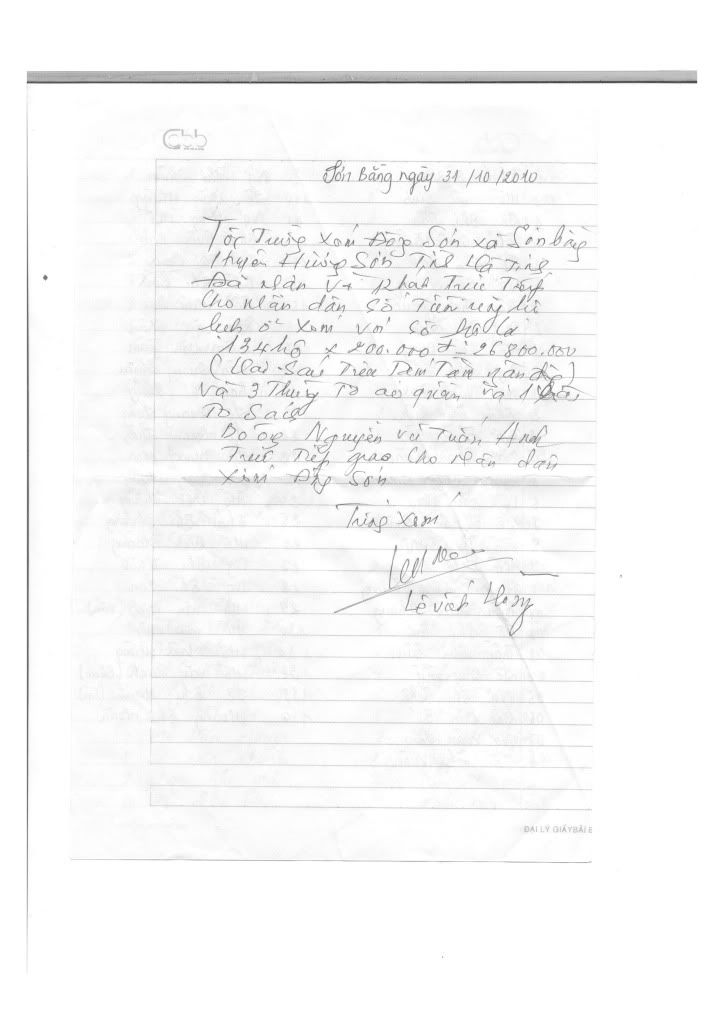 Cbb
Sơn Bằng ngày 31/10/2010
Tôi Trưởng xóm Đông Sơn xã Sơn Bằng
Huyện Hương Sơn Tỉnh Hà Tĩnh
Đã nhận và phát trực tiếp
Cho nhân dân số tiền ủng hộ
lũ lụt ở xóm với số hộ là
134 hộ x 200.000 đ = 26800.000
(Hai Sáu Triệu Tám Trăm ngàn đồng)
và 3 Thùng to áo quần và 1
To Sách
Do ông Nguyễn vũ Tuấn Anh
Trực Tiếp giao cho nhân dân
xóm Đông Sơn
Trưởng xóm
Lê
ĐẠI LÝ GIẤY BÃI B